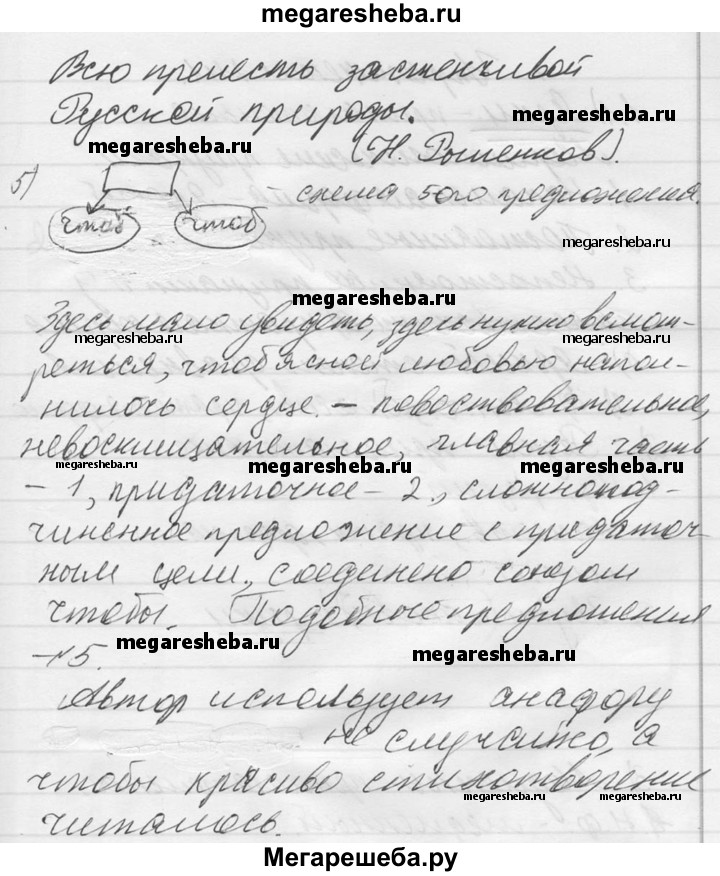 megaresheba.ru
Всю прелесть застенчивой
Русской природы.
megaresheba.ru
megaresheba.ru
(Н. Рыленков).
5)
- схема 5ого предложения.
чтоб чтоб
megaresheba.ru
megaresheba.ru
Здесь мало увидеть, здесь нужно всмот-
megaresheba.ru
megaresheba.ru
реться, чтоб ясной любовью напол-
нилось сердце. - повоствовательное,
невосклицательное, главная часть
megaresheba.ru
megaresheba.ru
megaresheba.ru
- 1, придаточное - 2., сложнопод-
чиненное предложение с придаточ-
ным цели, соединено союзом
чтобы. Подобные предложения
megaresheba.ru
megaresheba.ru
- №5.
Автор использует анафору
не случайно, а
megaresheba.ru
чтобы красиво стихотворение
megaresheba.ru
megaresheba.ru
читалось.
Мегарешеба.ру